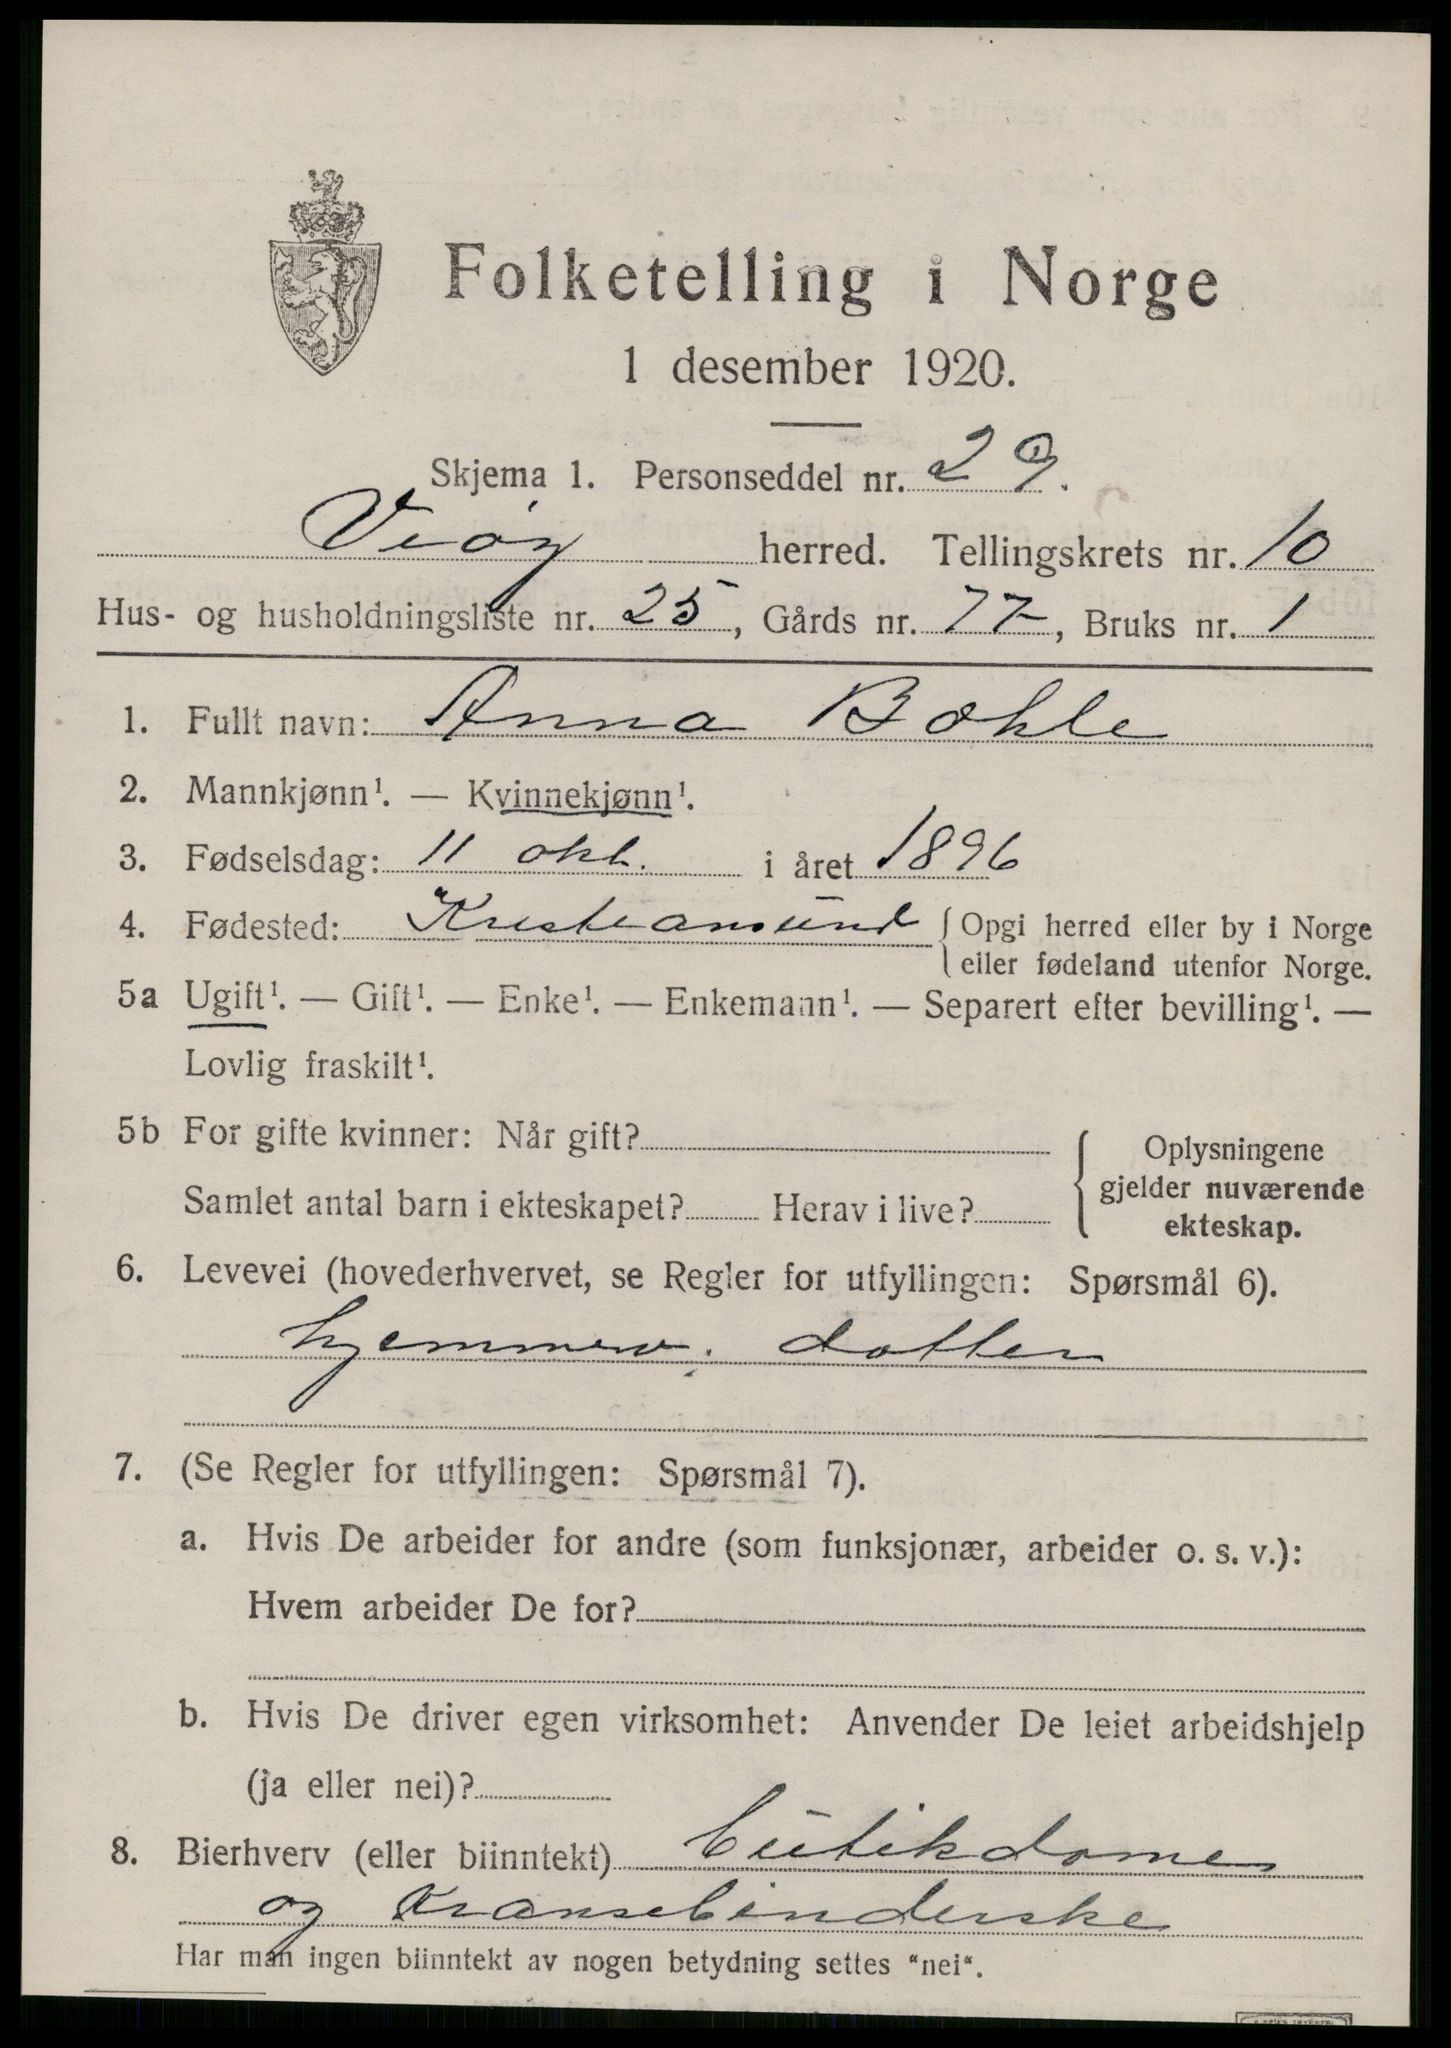 Folketelling i Norge
1 desember 1920.
Skjema 1. Personseddel nr. 29.
Veøy herred. Tellingskrets nr. 10
Hus- og husholdningsliste nr. 25, Gårds nr. 77, Bruks nr. 1
1. Fullt navn: Anna Bohle
2. Mannkjønn¹. — Kvinnekjønn¹.
3. Fødselsdag: 11 okt. i året 1896
4. Fødested: Kristiansund { Opgi herred eller by i Norge
eller fødeland utenfor Norge.
5a Ugift¹. — Gift¹. — Enke¹. — Enkemann¹. — Separert efter bevilling¹. —
Lovlig fraskilt¹.
5b For gifte kvinner: Når gift?
Samlet antal barn i ekteskapet? Herav i live?
{ Oplysningene
gjelder nuværende
ekteskap.
6. Levevei (hovederhvervet, se Regler for utfyllingen: Spørsmål 6).
hjemmev. datter
7. (Se Regler for utfyllingen: Spørsmål 7).
a. Hvis De arbeider for andre (som funksjonær, arbeider o. s. v.):
Hvem arbeider De for?
b. Hvis De driver egen virksomhet: Anvender De leiet arbeidshjelp
(ja eller nei)?
8. Bierhverv (eller biinntekt) butikdame
og Kransebinderske
Har man ingen biinntekt av nogen betydning settes "nei".